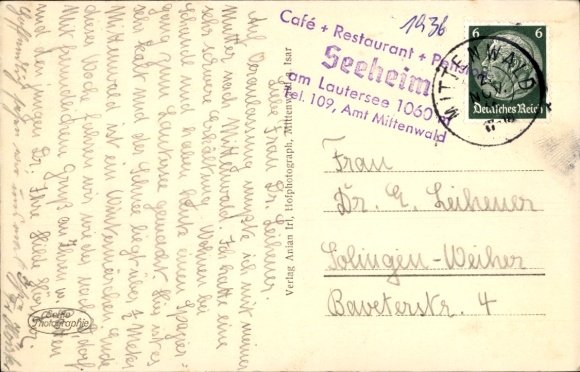 1936
Café + Restaurant + Pension
Seeheim
am Lautersee 1060
Tel. 109, Amt Mittenwald
6
6
Deutsches Reich
MITTENWALD
Frau
Dr. E. Leiheuer
Solingen-Weiher
Baveterstr. 4
Verlag Anian Irl, Hofphotograph, Mittenwald Isar
Echte
Photographie
Liebe Frau Dr. Leiheuer.
Auf Veranlassung mußte ich mit meiner
Mutter nach Mittenwald. Ich hatte eine
sehr schwere Erkältung. Wohnen bei
Bekannte und haben heute einen Spazier-
gang zum Lautersee gemacht. Hier ist es
sehr kalt und der Schnee liegt über 1 Meter
Mittenwald ist ein Wintermärchen. Ende
dieser Woche fahren wir wieder nach
Mit freundlichem Gruß an Ihnen u.
und den jungen Dr. Ihre Hilde
Hoffentlich sehen wir uns